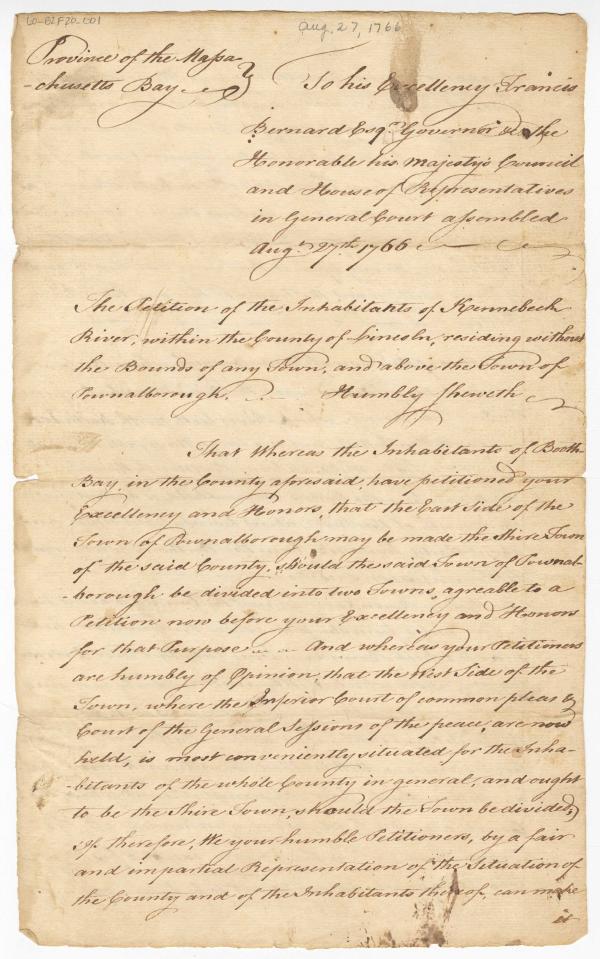 60-B2F20-001
Aug. 27, 1766
Province of the Massa
-chusetts Bay
To his Excellency Francis
Bernard Esqr. Governor & the
Honorable his Majesty's Council
and House of Representatives
in General Court assembled
Augt. 27th. 1766
The Petition of the Inhabitants of Kennebeck
River, within the County of Lincoln, residing without
the Bounds of any Town, and above the Town of
Pownalborough. Humbly sheweth
That Whereas the Inhabitants of Booth-
Bay in the County aforesaid, have petitioned your
Excellency and Honors, that the East Side of the
Town of Pownalborough may be made the Shire Town
of the said County, should the said Town of Pownal-
-borough be divided into two Towns, agreable to a
Petition now before your Excellency and Honors
for that Purpose And whereas your Petitioners
are humbly of Opinion, that the west Side of the
Town, where the Inferior Court of common pleas &
Court of the General Sessions of the peace, are now
held, is most conveniently situated for the Inha-
-bitants of the whole County in general, and ought
to be the Shire Town, should the Town be divided,
if therefore, We your humble Petitioners, by a fair
and impartial Representation of the Situation of
the County and of the Inhabitants thereof, can make
it